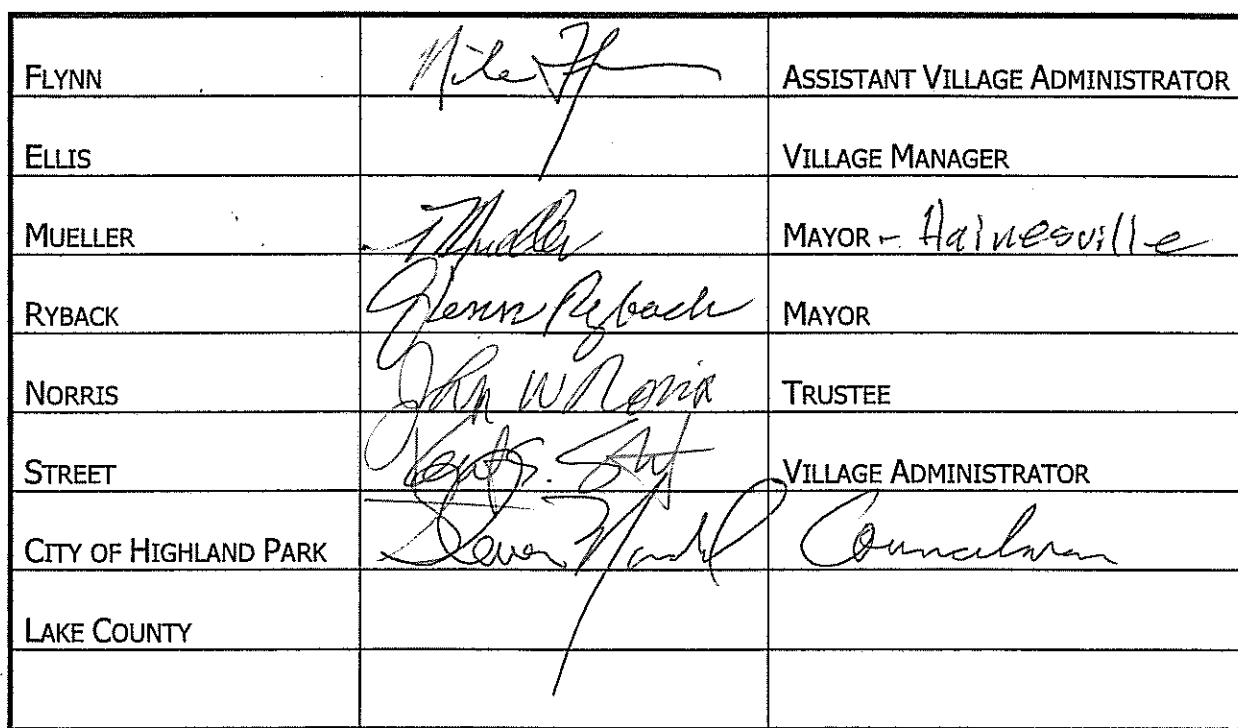 FLYNN Mike Flynn ASSISTANT VILLAGE ADMINISTRATOR
ELLIS VILLAGE MANAGER
MUELLER Mueller MAYOR - Hainesville
RYBACK Glenn Ryback MAYOR
NORRIS John W Norris TRUSTEE
STREET VILLAGE ADMINISTRATOR
CITY OF HIGHLAND PARK Steven Mandel Councilman
LAKE COUNTY